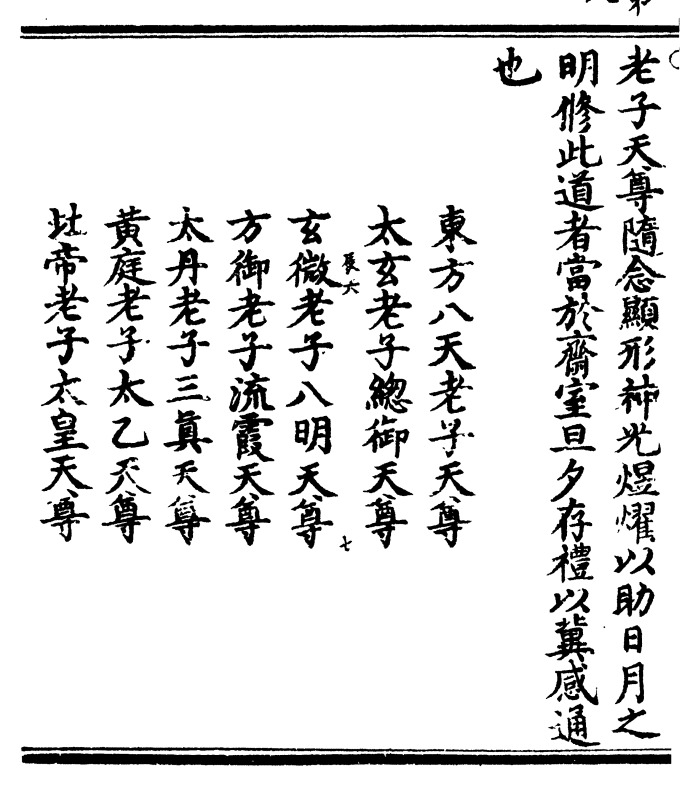 老子天尊隨念顯形神光煜燿以助日月之
明修此道者當於齋室旦夕存禮以冀感通
也
東方八天老子天尊
太玄老子總御天尊
玄微老子八明天尊
方御老子流霞天尊
太丹老子三真天尊
黃庭老子太乙天尊
帝老子太皇天尊
七